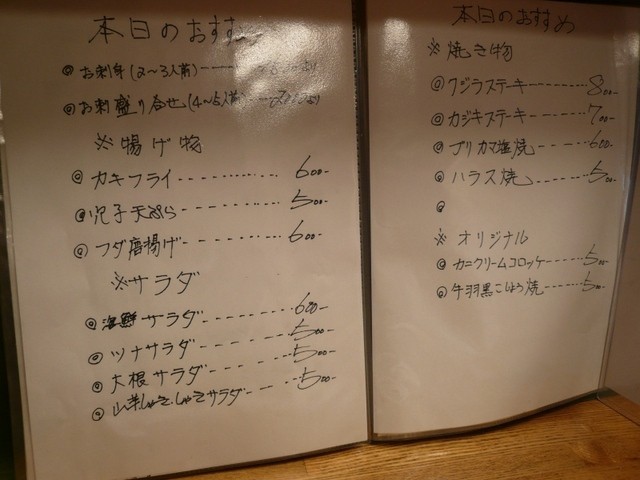 本日のおすすめ
◎お刺身(2〜3人前)
◎お刺盛り合せ(4〜5人前)
※揚げ物
◎カキフライ 600-
◎穴子天ぷら 500-
◎フグ唐揚げ 600-
※サラダ
◎海鮮サラダ 600-
◎ツナサラダ 500-
◎大根サラダ 500-
◎山芋しゃきしゃきサラダ 500-
本日のおすすめ
※焼き物
◎クジラステーキ 800-
◎カジキステーキ 700-
◎ブリカマ塩焼 600-
◎ハラス焼 500-
◎
※オリジナル
◎カニクリームコロッケ 500-
◎手羽黒こしょう焼 500-